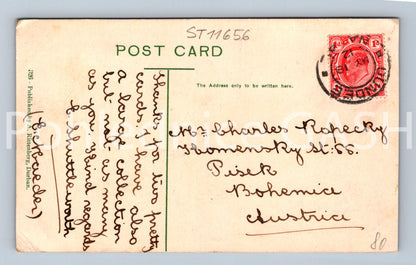 ST11656
POST CARD
The Address only to be written here.
DUNDEE
Thanks for two pretty
cards, I have also
a large collection
but not as many
as you, Kind regards
E. Shuttleworth
Mr Charles Kopecky
Komensky St: 55.
Pisek
Bohemia
Austria
Published by
Rittenberg, Durban.
80